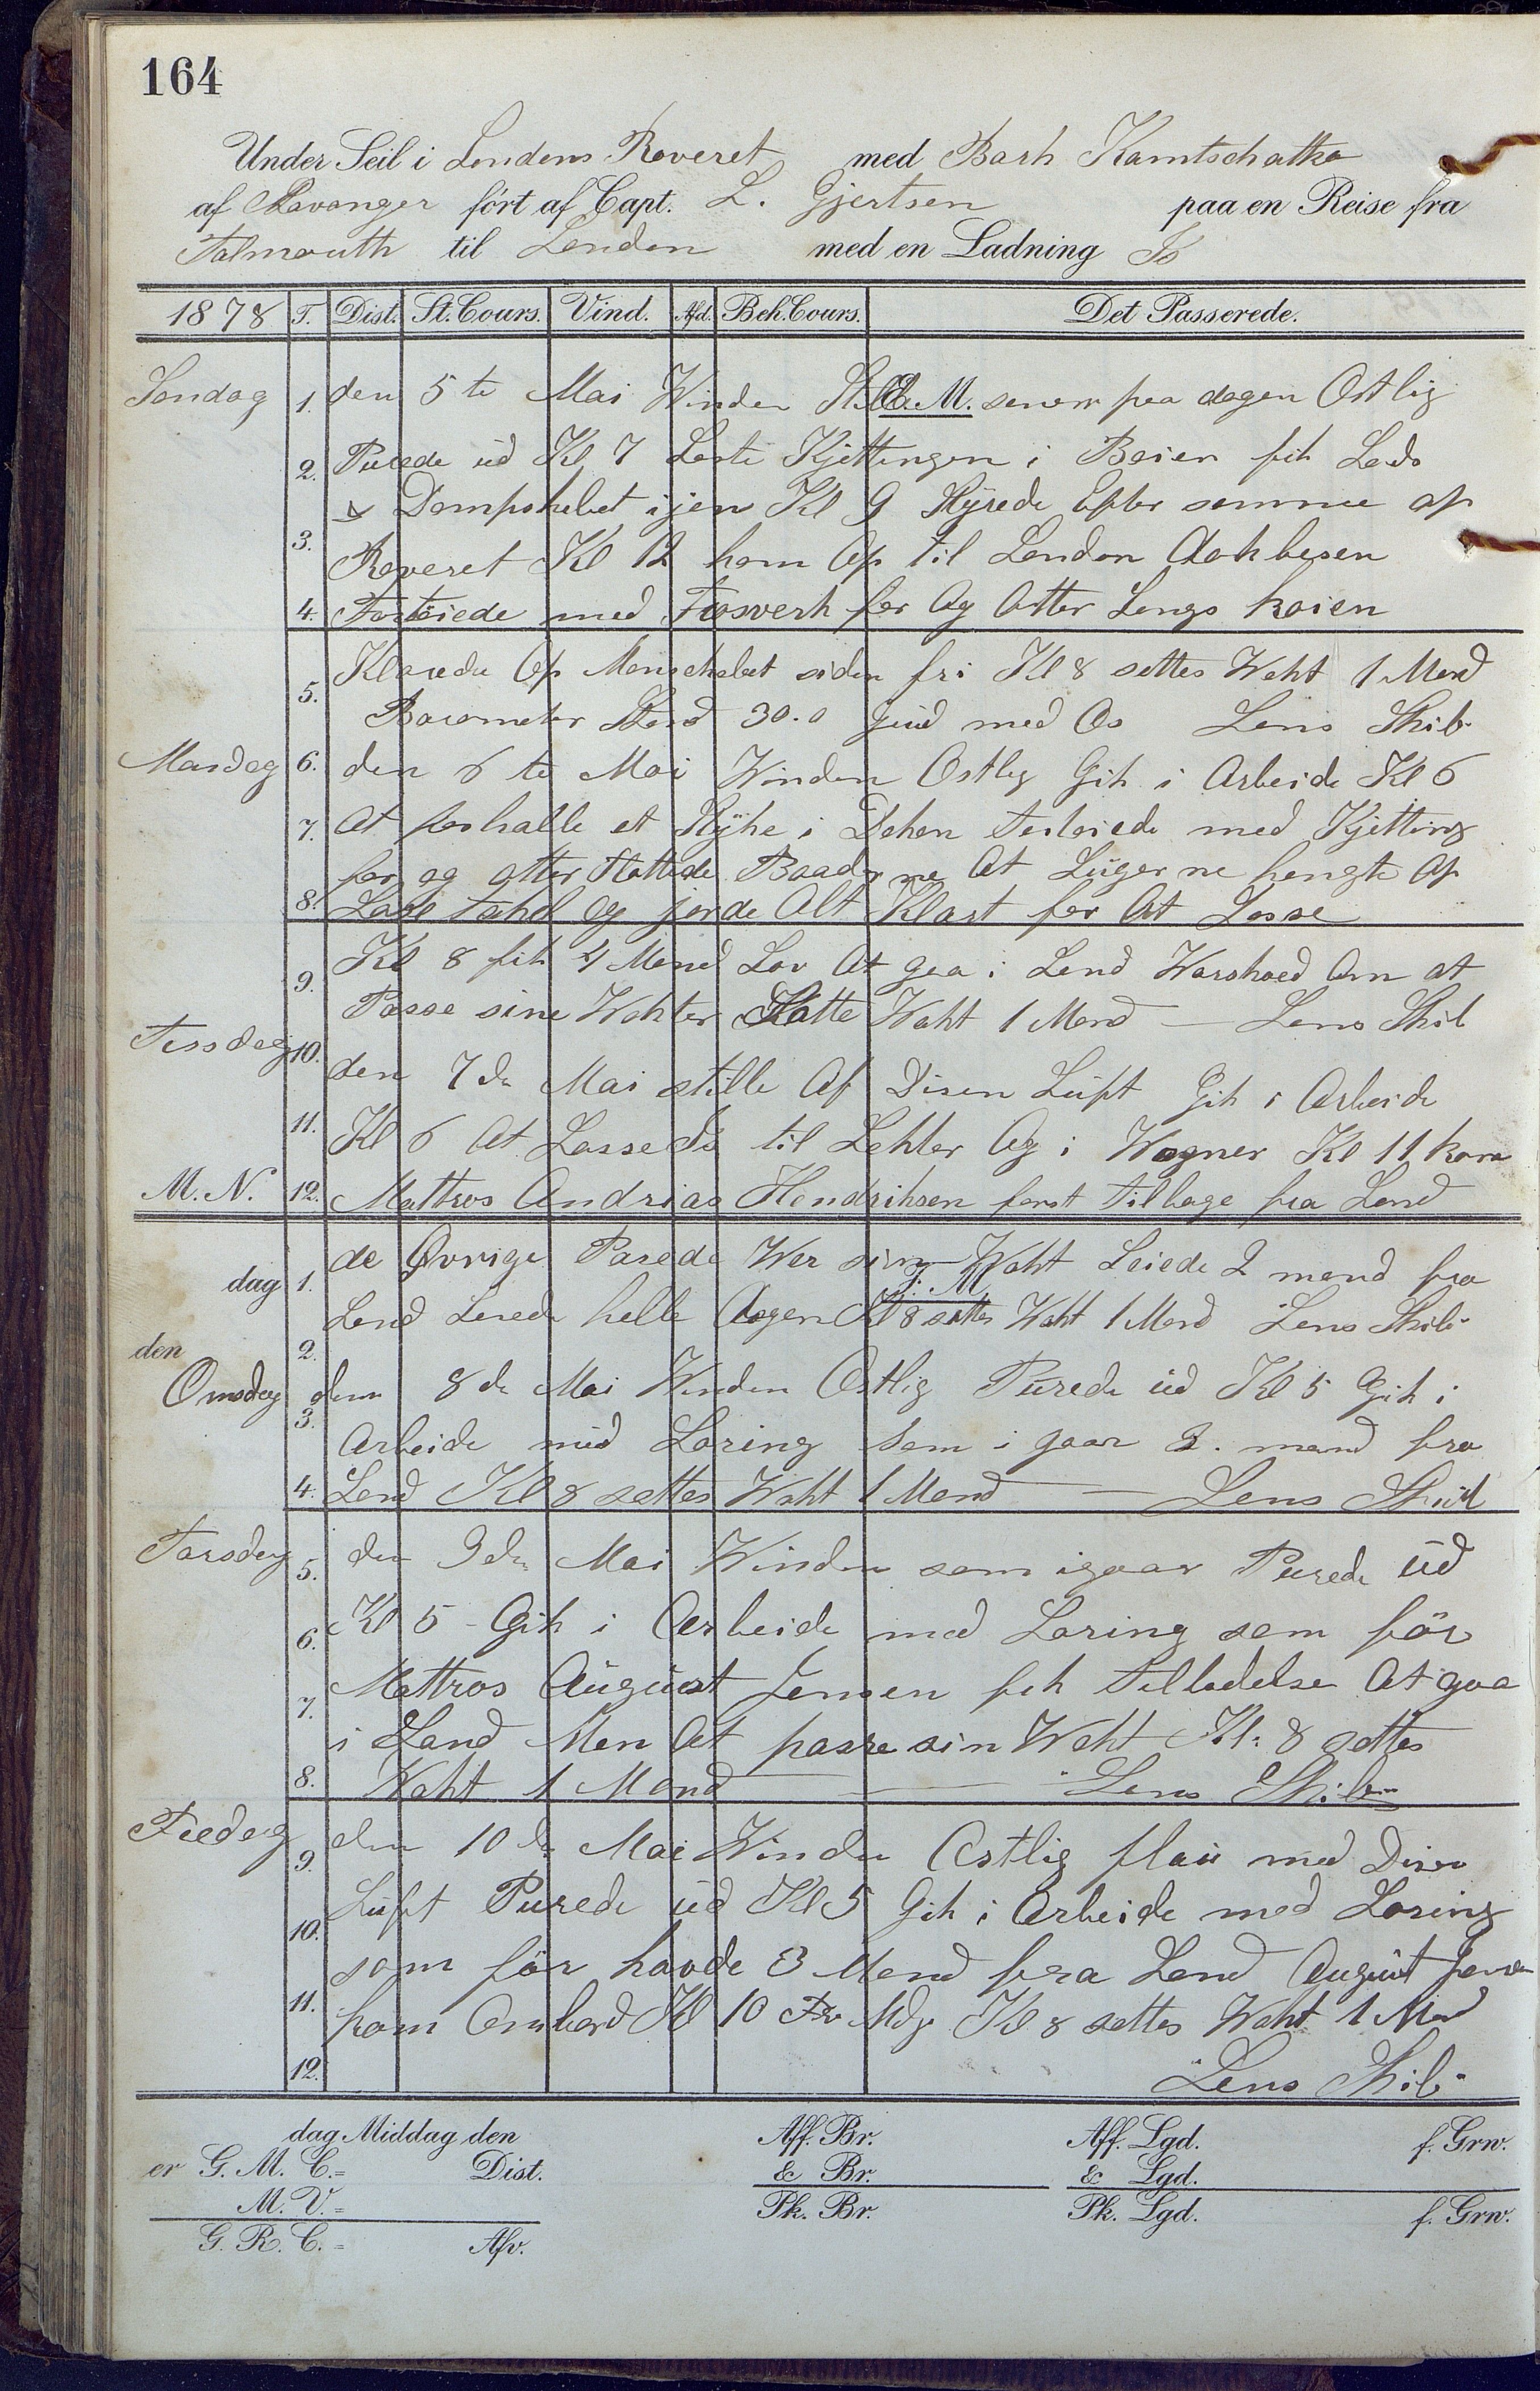 164
Under Seil i Londons Reveret med Bark Kamtschatka
af Stavanger ført af Capt. L. Gjertsen paa en Reise fra
Falmouth til London med en Ladning Is
1878 T. Dist. St. Cours. Vind. Afd. Beh. Cours. Det Passerede.
Søndag 1. den 5te Mai Winden Still E.M. senere paa dagen Ostlig
2. Purede ud Kl 7 Leste Kjettingen i Beien fik Lods
& Dampskebet igjen Kl 9 Hyrede Efter samme op
3. Reveret Kl 12 kom Op til London Dokbesen
4. Fortøiede med Tosverk for Og Atter Lengs kaien
5. Klarede Op Manschabet siden fri Kl 8 settes Wakt 1 Mand
Barometer Stand 30.0 Gud med Os Lens Skib
Mandag 6. den 6te Mai Winden Ostlig Gik i Arbeide Kl 6
7. At forhalle et Stykke i Dokken Fortøiede med Kjetting
for og atter flottede Baaderne At Lugerne hengte Op
8. Lose Takel Og jorde Alt Klart for At Losse
9. Kl 8 fik 4 Mand Lov At gaa i Land Warskoed Om at
Passe sine Wakter Satte Wakt 1 Mand — Lens Skib
Tirsdag 10. den 7de Mai stille Af Disen Luft Gik i Arbeide
11. Kl 6 At Losse Is til Lekter Og i Wogner Kl 11 kom
M. N. 12. Mattros Andrias Hendriksen først tilbage fra Land
dag 1. de Øvrige Pasede Wer sin Wakt Leiede 2 mand fra
F. M.
den 2. Land Losede helle Dagen Kl 8 settes Wakt 1 Mand Lens Skib
Onsdag den 8de Mai Winden Ostlig Purede ud Kl 5 Gik i
3. Arbeide med Losing Som i gaar 2. mand fra
4. Land Kl 8 settes Wakt 1 Mand — Lens Skib
Torsdag 5. den 9de Mai Winden som igaar Purede ud
6. Kl 5 - Gik i Arbeide med Losing som før
7. Mattros August Jensen fik Tilladelse At gaa
i Land Men At passe sin Wakt Kl. 8 settes
8. Wakt 1 Mand — Lens Skib
Fredag 9. den 10de Mai Winden Ostlig flau med Disen
10. Luft Purede ud Kl 5 Gik i Arbeide med Losing
som før havde 3 Mand fra Land August Jensen
11. kom Ombord Kl 10 For Mdg. Kl 8 settes Wakt 1 Mand
12. Lens Skib
dag Middag den Aff. Br. Aff. Lgd. f. Grw.
er G. M. C.= Dist. & Br. & Lgd.
M. V.= Pk. Br. Pk. Lgd. f. Grw.
G. R. C.= Afv.